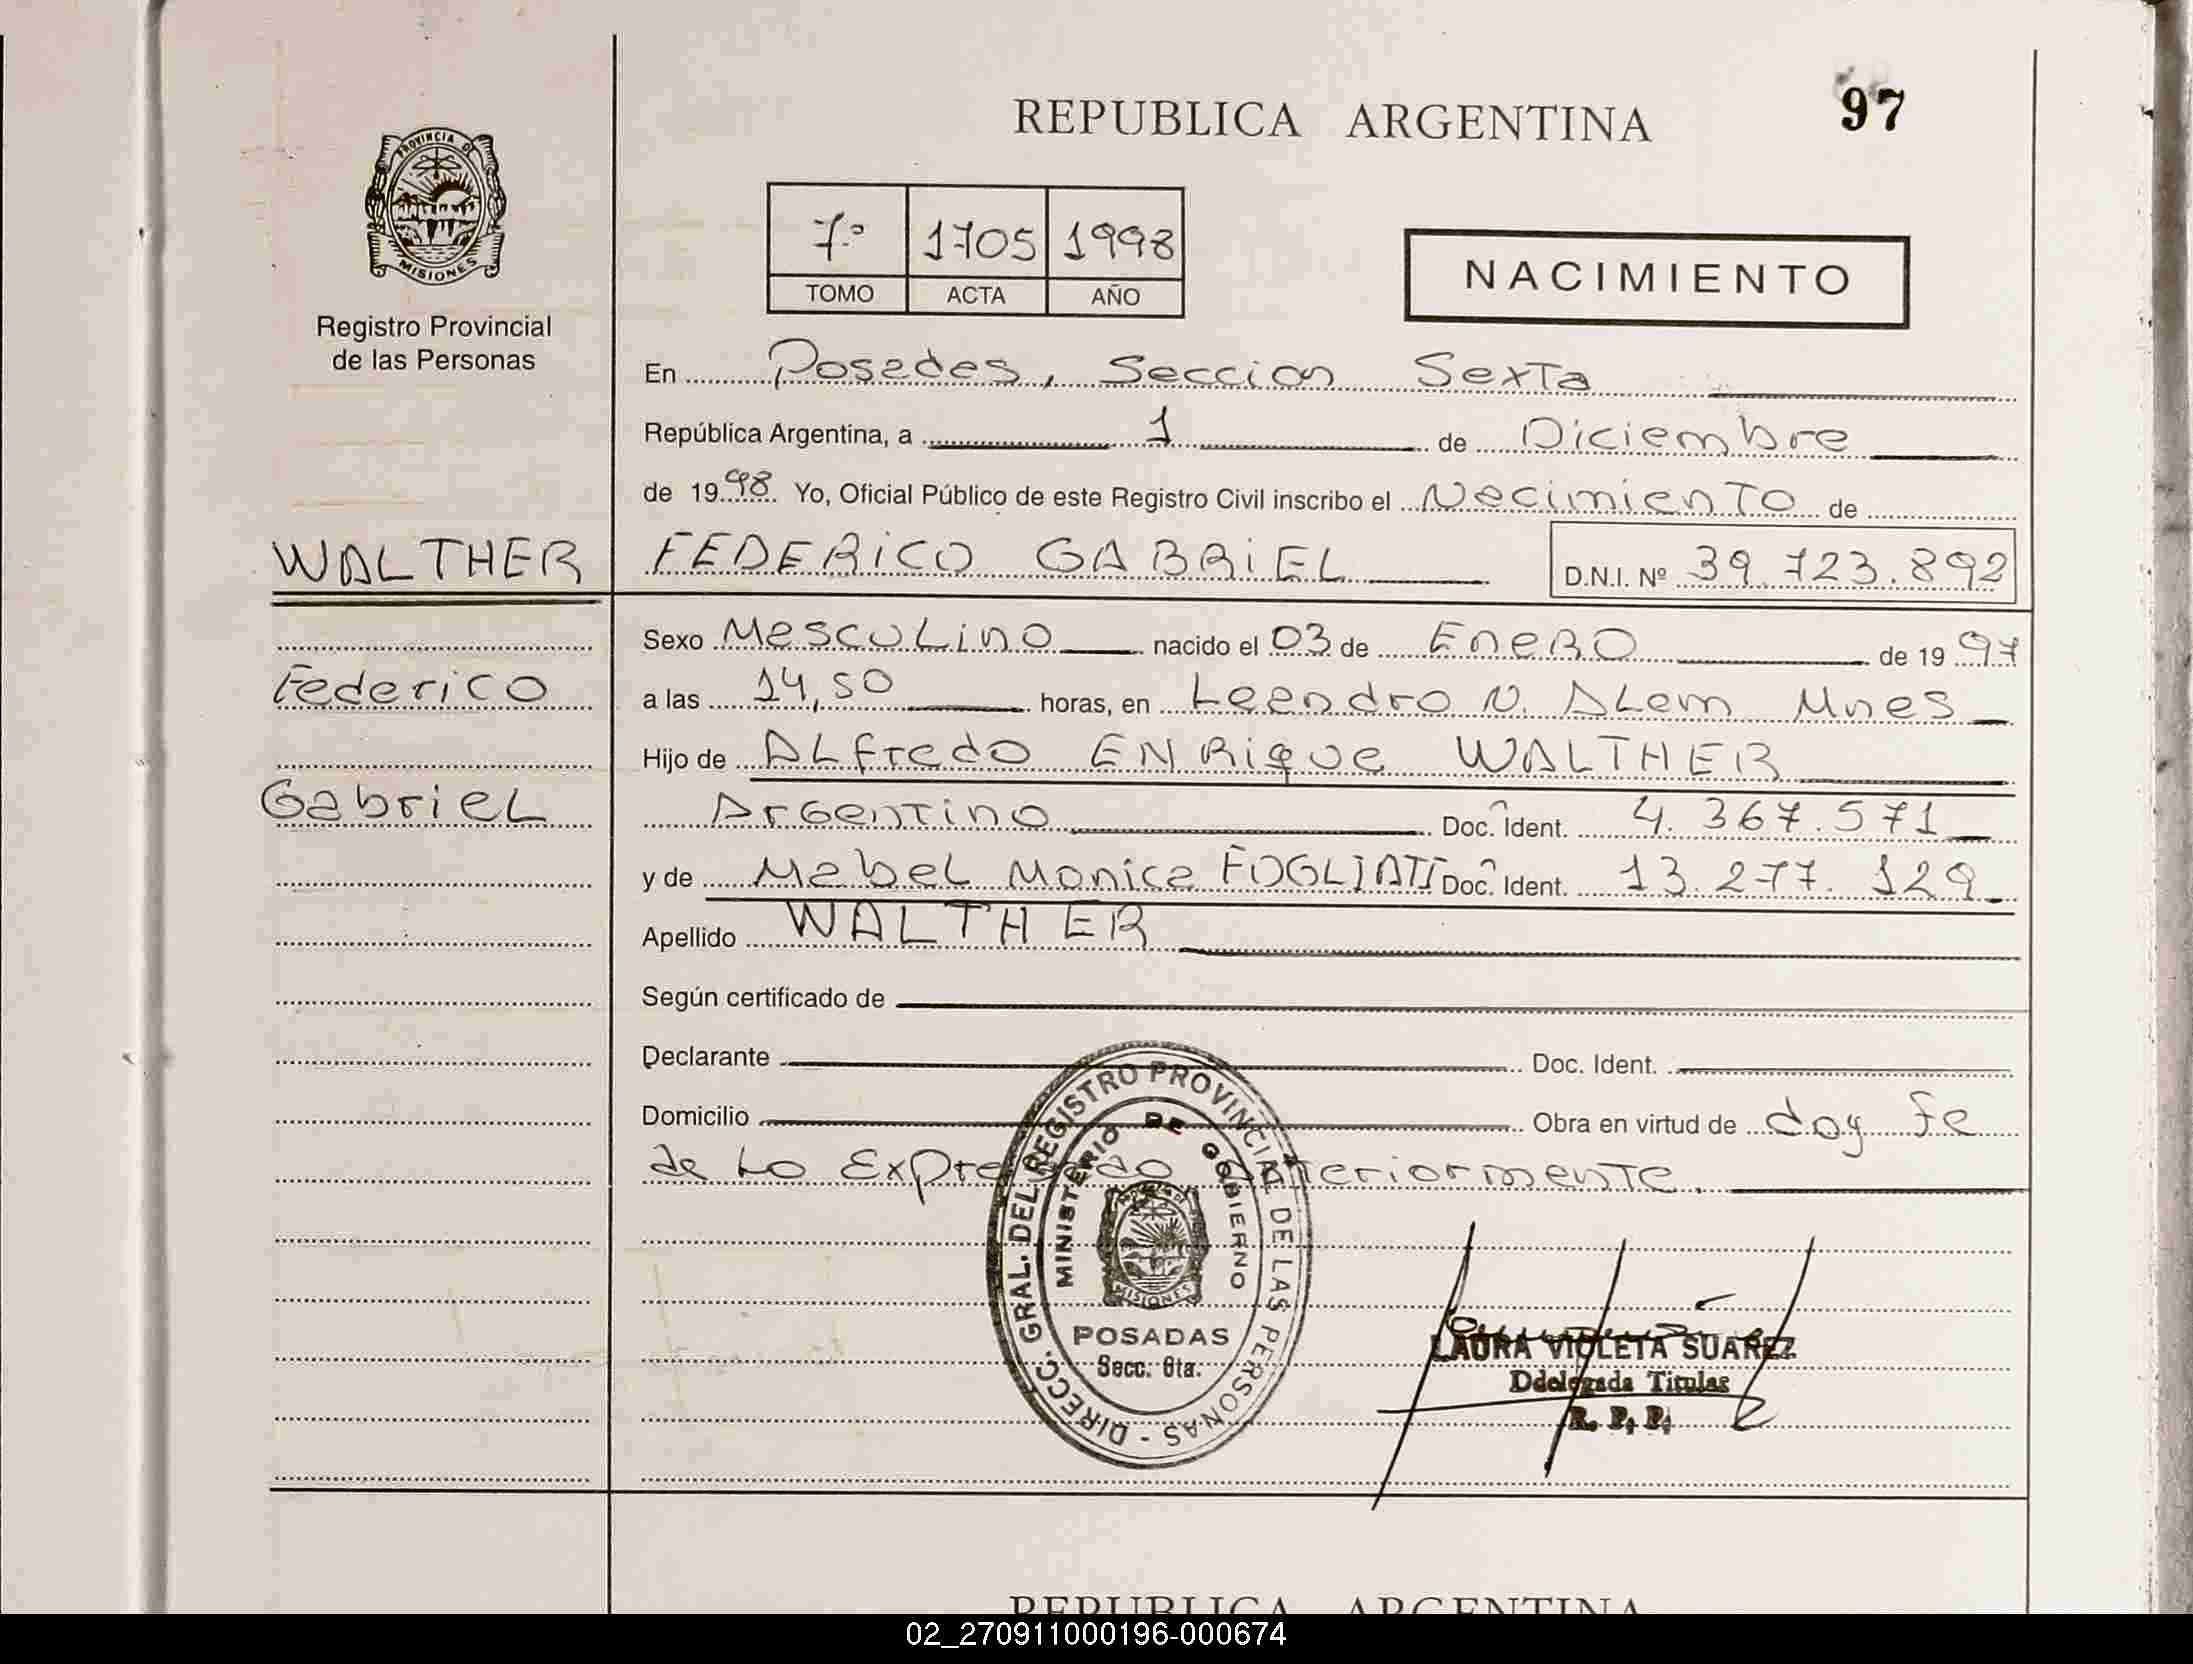 REPUBLICA ARGENTINA
97
PROVINCIA DE
MISIONES
Registro Provincial
de las Personas
7º 1705 1998
TOMO ACTA AÑO
NACIMIENTO
En Posadas, Seccion Sexta
República Argentina, a 1 de Diciembre
de 1998 Yo, Oficial Público de este Registro Civil inscribo el Nacimiento de
WALTHER FEDERICO GABRIEL D.N.I. Nº 39.723.892
Sexo Masculino nacido el 03 de Enero de 1997
Federico
a las 14,50 horas, en Leandro N. Alem Mnes
Hijo de Alfredo ENRique WALTHER
Gabriel
Argentino Doc. Ident. 4.367.571
y de Mabel Monica FOGLIATTI Doc. Ident. 13.277.129
Apellido WALTHER
Según certificado de
Declarante Doc. Ident.
Domicilio Obra en virtud de doy fe
de Lo Expresado anteriormente.
DIRECC. GRAL. DEL REGISTRO PROVINCIAL DE LAS PERSONAS -
MINISTERIO DE GOBIERNO
MISIONES
POSADAS
Secc. 6ta.
LAURA VIOLETA SUAREZ
Ddelegada Titular
R. P. P.
REPUBLICA ARGENTINA
02_270911000196-000674